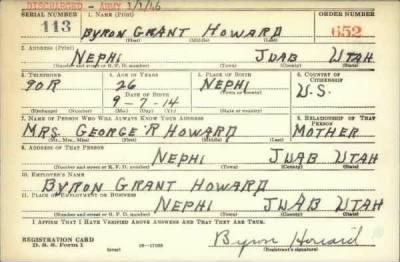 DISCHARGED - ARMY 1/2/46
SERIAL NUMBER 1. NAME (Print) ORDER NUMBER
113 BYRON GRANT HOWARD 652
(First) (Middle) (Last)
2. ADDRESS (Print)
NEPHI JUAB UTAH
(Number and street or R. F. D. number) (Town) (County) (State)
3. TELEPHONE 4. AGE IN YEARS 5. PLACE OF BIRTH 6. COUNTRY OF CITIZENSHIP
90R 26 NEPHI U.S.
DATE OF BIRTH
9-7-14 UTAH
(Exchange) (Number) (Mo.) (Day) (Yr.) (State or country)
7. NAME OF PERSON WHO WILL ALWAYS KNOW YOUR ADDRESS 8. RELATIONSHIP OF THAT PERSON
MRS. GEORGE R HOWARD MOTHER
(Mr., Mrs., Miss) (First) (Middle) (Last)
9. ADDRESS OF THAT PERSON
NEPHI JUAB UTAH
(Number and street or R. F. D. number) (Town) (County) (State)
10. EMPLOYER'S NAME
BYRON GRANT HOWARD
11. PLACE OF EMPLOYMENT OR BUSINESS
NEPHI JUAB UTAH
(Number and street or R. F. D. number) (Town) (County) (State)
I AFFIRM THAT I HAVE VERIFIED ABOVE ANSWERS AND THAT THEY ARE TRUE.
REGISTRATION CARD
D. S. S. Form 1 (over) 16-17105
Byron Howard
(Registrant's signature)